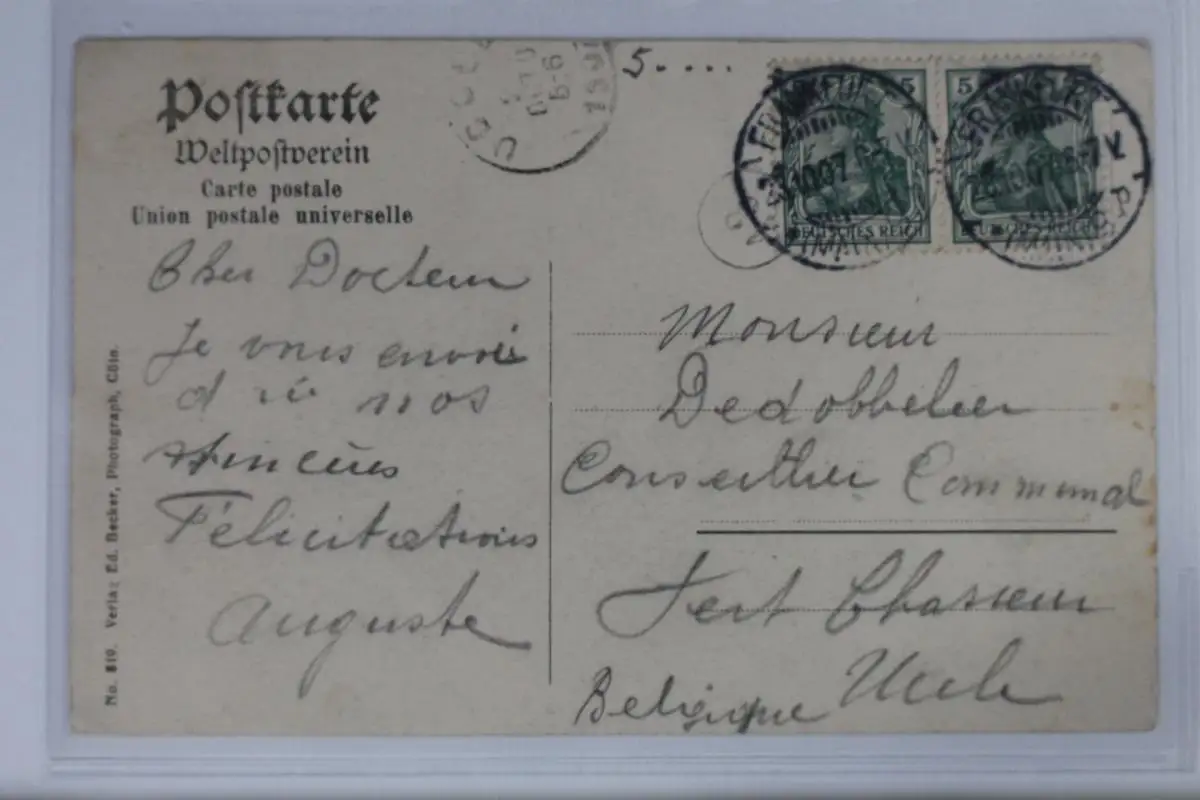 Postkarte
Weltpostverein
Carte postale
Union postale universelle
5....
5
5
DEUTSCHES REICH
DEUTSCHES REICH
FRANKFURT
FRANKFURT
10.07
6-7 V.
Cher Docteur
Je vous envoie
nos
sincères
Félicitations
Auguste
Monsieur
Dedobbeleer
Conseiller Communal
Chasseur
Uccle
Belgique
No. 819. Verlag Ed. Becker, Photograph, Cöln.